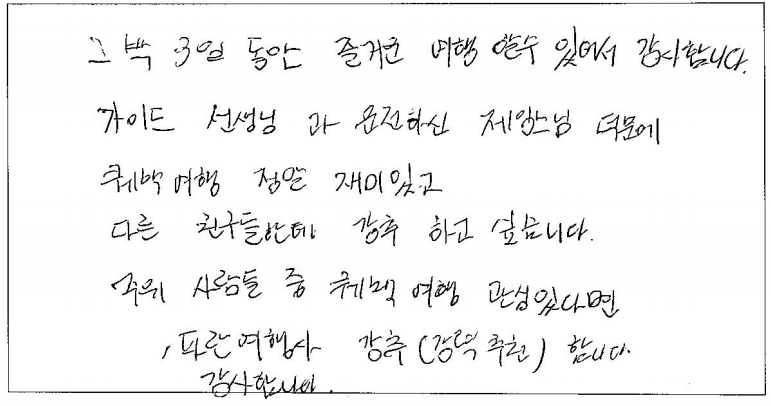 2박 3일 동안 즐거운 여행 할수 있어서 감사합니다.
가이드 선생님 과 운전하신 제임스님 덕문에
퀘백여행 정말 재미있고
다른 친구들한테 강추 하고 싶습니다.
주위 사람들 중 퀘백 여행 관심있다면
, 파란여행사 강추 (강력 추천) 합니다.
감사합니다.